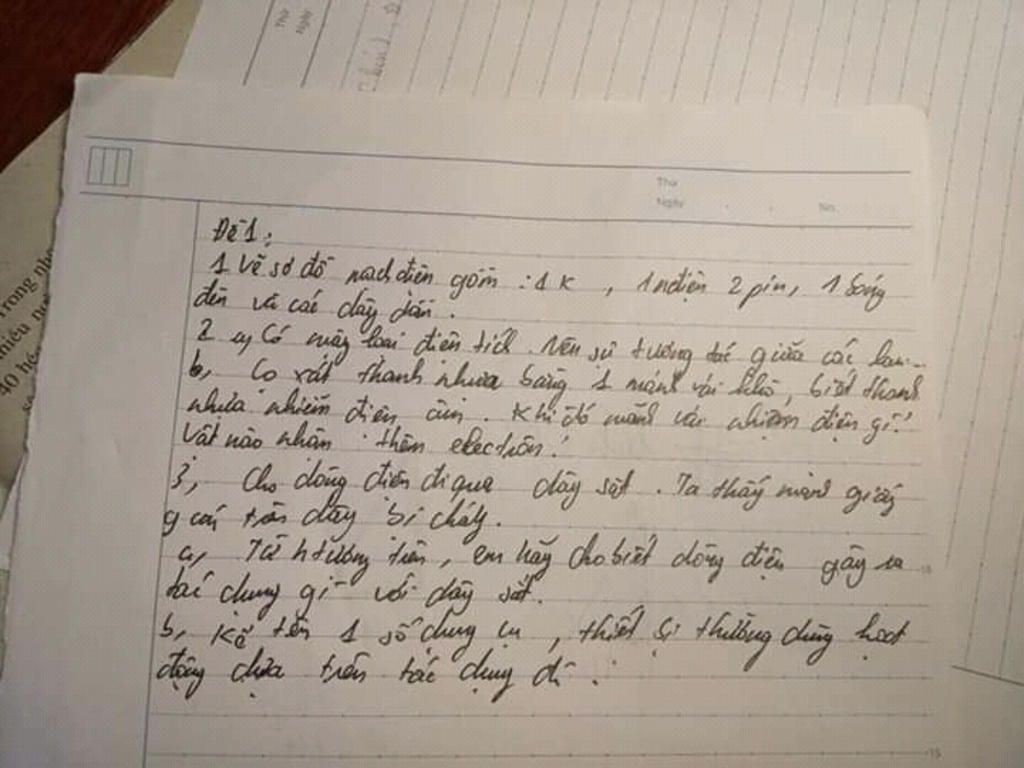 Thứ
Ngày
Thứ
Ngày
No.
Trong nh
nhiều n
40 hé
Đề 1:
1 Vẽ sơ đồ mạch điện gồm : 1 K , 1 nđiện 2 pin, 1 bóng
đèn và các dây dẫn.
2 a, Có mấy loại điện tích. Nêu sự tương tác giữa các loại...
b, Cọ xát thanh nhựa bằng 1 mảnh vải khô, biết thanh
nhựa nhiễm điện âm. Khi đó mảnh vải nhiễm điện gì?
Vật nào nhận thêm electrôn?
3, Cho dòng điện đi qua dây sắt. Ta thấy mảnh giấy
trên dây bị cháy.
a, Từ htượng trên, em hãy cho biết dòng điện gây ra
tác dụng gì với dây sắt.
b, Kể tên 1 số dụng cụ , thiết bị thường dùng hoạt
động dựa trên tác dụng đó.
15